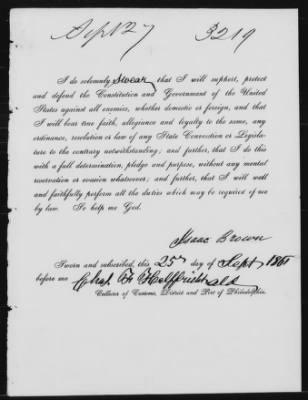 Sept 27 3219
I do solemnly swear that I will support, protect
and defend the Constitution and Government of the United
States against all enemies, whether domestic or foreign, and that
I will bear true faith, allegiance and loyalty to the same, any
ordinance, resolution or law of any State Convention or Legisla-
ture to the contrary notwithstanding; and further, that I do this
with a full determination, pledge and purpose, without any mental
reservation or evasion whatsoever; and further, that I will well
and faithfully perform all the duties which may be required of me
by law. So help me God.
Isaac Brown
Sworn and subscribed, this 25th day of Sept 1861
before me Chas.
Collector of Customs, District and Port of Philadelphia.